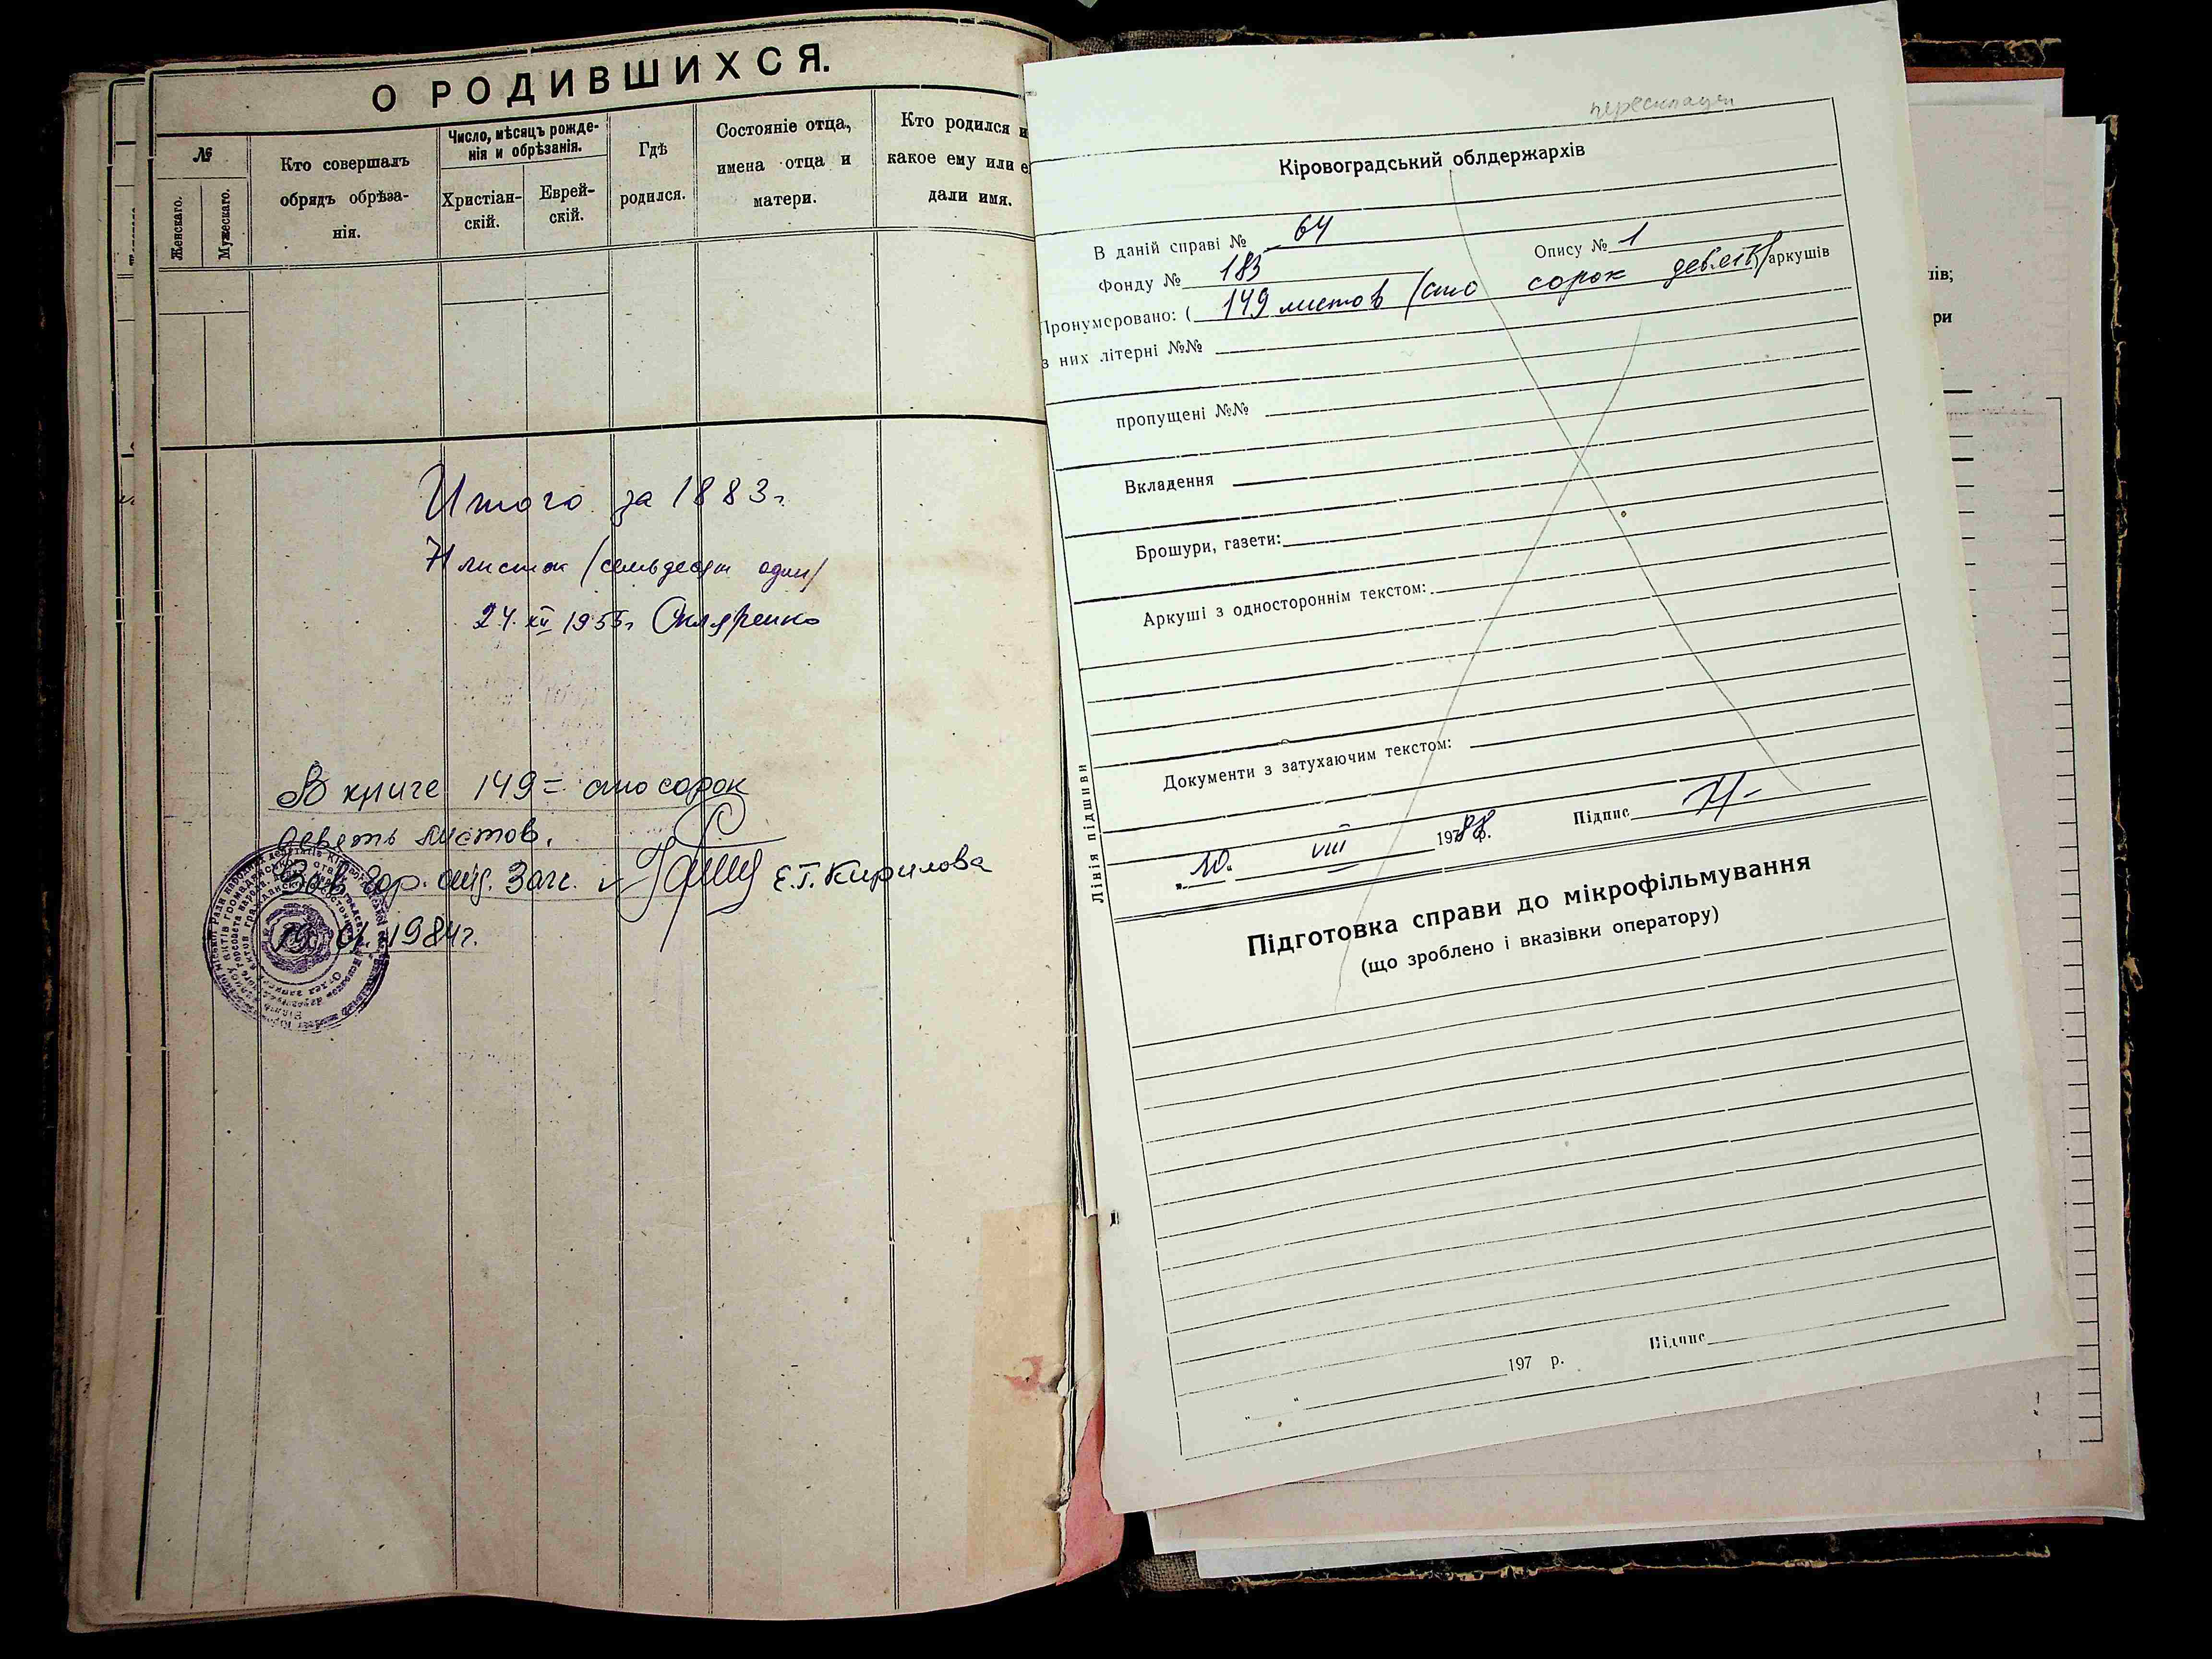 О РОДИВШИХСЯ.
№
Женскаго.
Мужескаго.
Кто совершалъ
обрядъ обрѣза-
нія.
Число, мѣсяцъ рожде-
нія и обрѣзанія.
Христіан-
скій.
Еврей-
скій.
Гдѣ
родился.
Состояніе отца,
имена отца и
матери.
Кто родился и
какое ему или е
дали имя.
Итого за 1883г.
71 листок /семьдесят один/
24. XII 1955г Скляренко
В книге 149 = сто сорок
девять листов.
Зав. Гор. отд. Загс. Е.Г. Кирилова
1984г.
перескладен
Кіровоградський облдержархів
В даній справі № 64
Опису № 1
Фонду № 183
Пронумеровано: ( 149 листов /сто сорок девять/ аркушів
з них літерні №№
пропущені №№
Вкладення
Брошури, газети:
Аркуші з одностороннім текстом:
Документи з затухаючим текстом:
„ 10. VIII 1988 р.
Підпис
Лінія підшиви
Підготовка справи до мікрофільмування
(що зроблено і вказівки оператору)
„ “ 197 р.
Підпис
ів;
ри